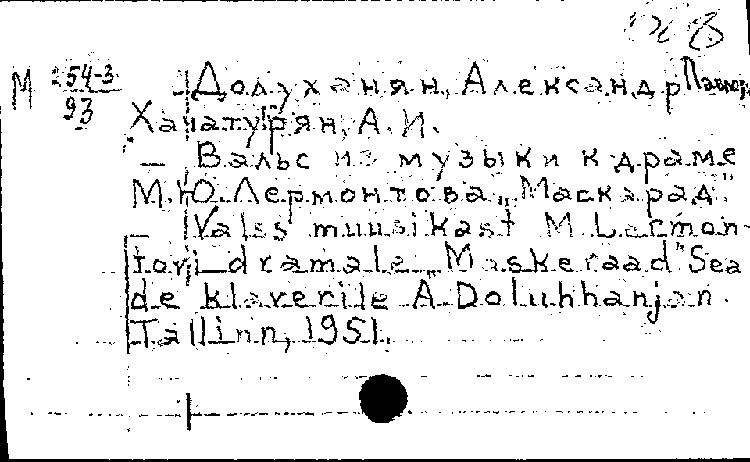 М 254-3/93 Долуханян, Александр Павлор.
Хачатурян, А. И.
— Вальс из музыки к драме
М. Ю. Лермонтова „Маскарад".
— Valss muusikast M. Lermon-
tovi dramale „Maskeraad" Sea
de klaverile A. Doluhhanjan.
Tallinn, 1951.